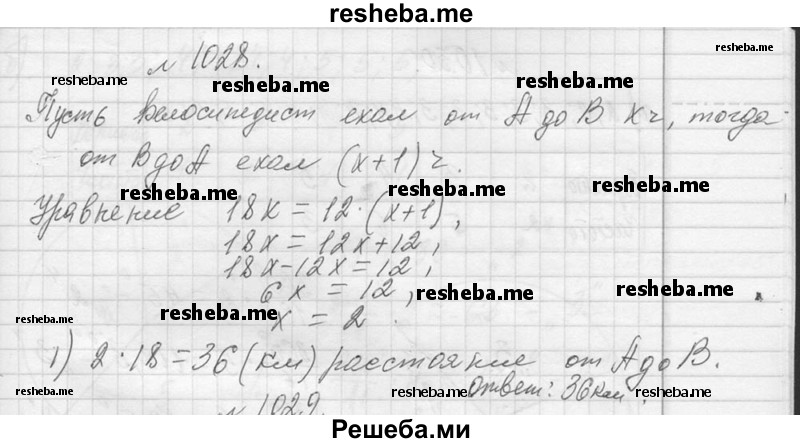 resheba.me
№ 1028.
resheba.me
resheba.me resheba.me resheba.me
Пусть велосипедист ехал от А до В x ч, тогда
от В до А ехал (x+1) ч.
resheba.me resheba.me resheba.me
Уравнение 18x = 12·(x+1),
18x = 12x+12,
18x-12x=12,
6x = 12,
resheba.me resheba.me
x = 2.
resheba.me resheba.me
1) 2·18=36 (км) расстояние от А до В.
resheba.me resheba.me resheba.me
Ответ: 36 км.
№ 1029.
Решеба.ми